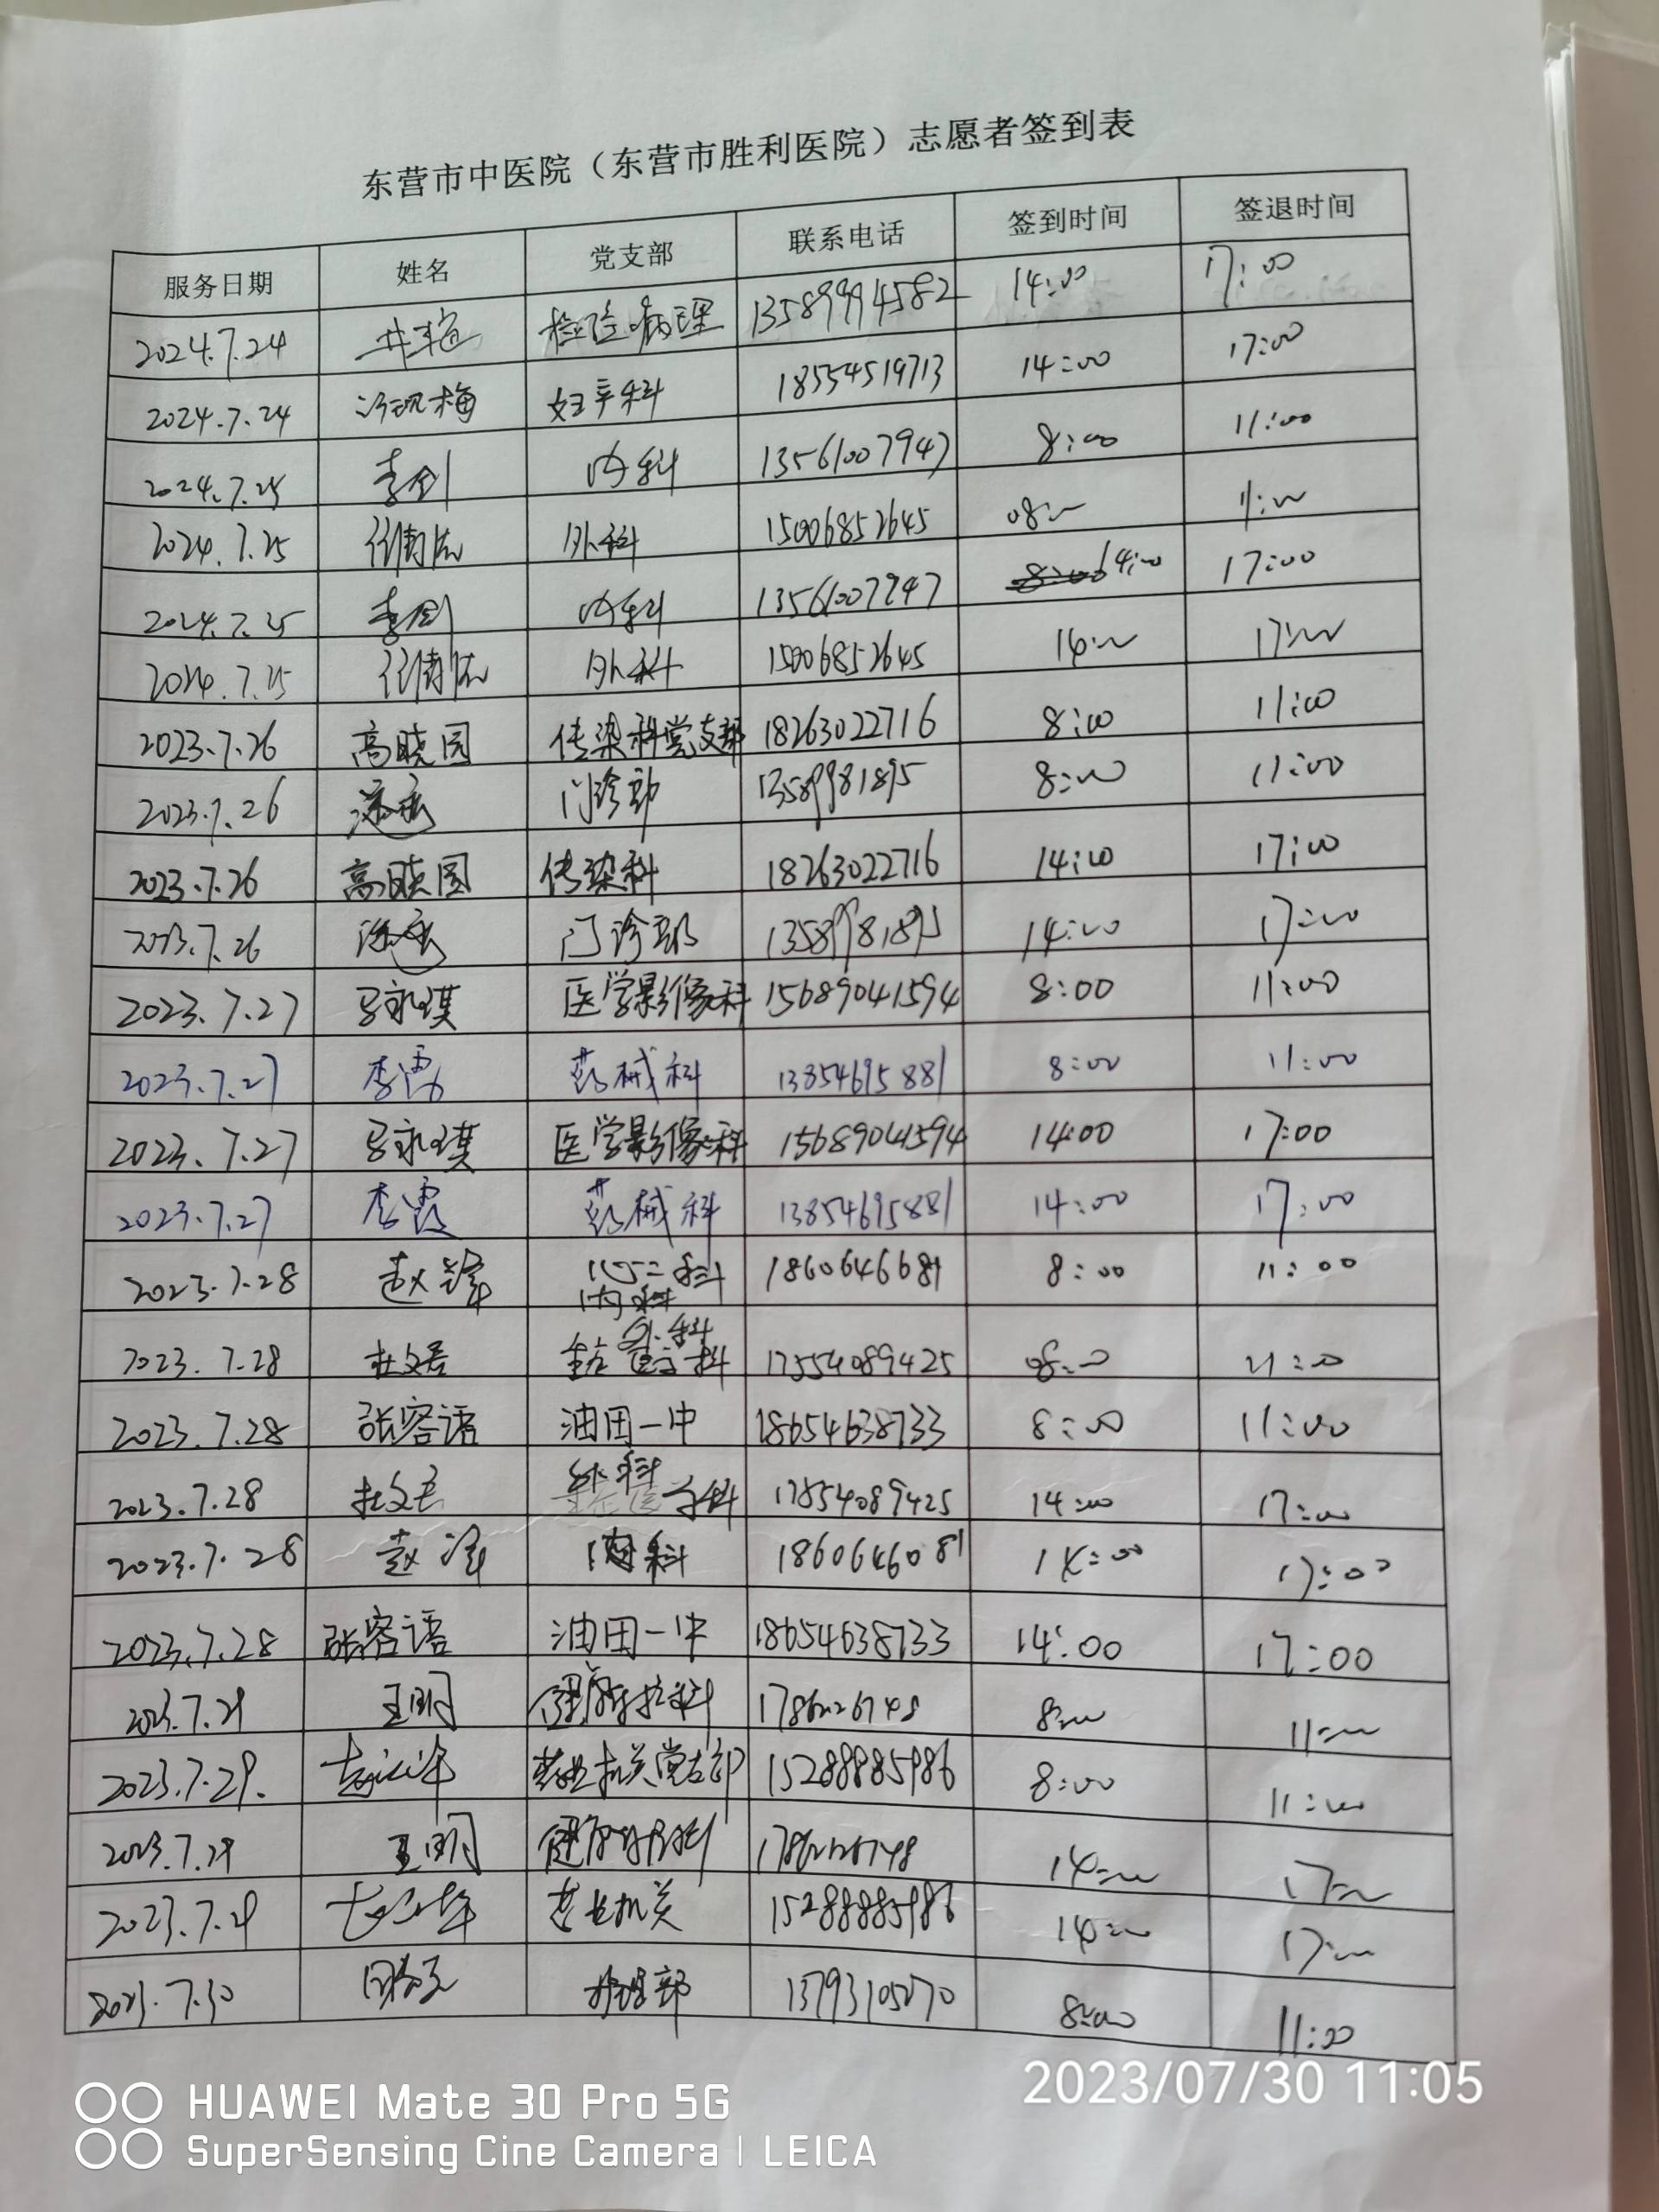 东营市中医院（东营市胜利医院）志愿者签到表
服务日期 姓名 党支部 联系电话 签到时间 签退时间
2024.7.24 检验病理 13589994582 14:00 17:00
2024.7.24 妇产科 18554519713 14:00 17:00
2024.7.25 李剑 内科 13561007947 8:00 11:00
2024.7.25 外科 15006852645 08:00 11:00
2024.7.25 李剑 内科 13561007947 14:00 17:00
2024.7.25 外科 15006852645 14:00 17:00
2023.7.26 高晓园 传染科党支部 18263022716 8:00 11:00
2023.7.26 门诊部 13589981895 8:00 11:00
2023.7.26 高晓园 传染科 18263022716 14:00 17:00
2023.7.26 门诊部 13589981895 14:00 17:00
2023.7.27 马永琪 医学影像科 15689041594 8:00 11:00
2023.7.27 李霞 药械科 13854695881 8:00 11:00
2023.7.27 马永琪 医学影像科 15689041594 14:00 17:00
2023.7.27 李霞 药械科 13854695881 14:00 17:00
2023.7.28 赵 内科 8:00 11:00
2023.7.28 杜文君 外科 08:00 11:00
2023.7.28 张容语 油田一中 18654638733 8:00 11:00
2023.7.28 杜文君 外科 17854089425 14:00 17:00
2023.7.28 赵 内科 14:00 17:00
2023.7.28 张容语 油田一中 18654638733 14:00 17:00
2023.7.29 王明 8:00 11:00
2023.7.29. 机关党支部 15288885986 8:00 11:00
2023.7.29 王明 14:00 17:00
2023.7.29 机关 15288885986 14:00 17:00
2023.7.30 护理部 13793105270 8:00 11:00
2023/07/30 11:05
HUAWEI Mate 30 Pro 5G
SuperSensing Cine Camera | LEICA